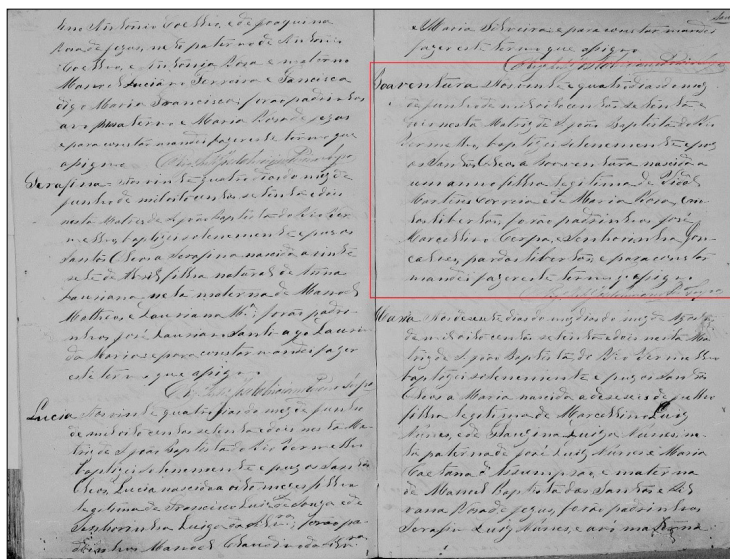 tino Antonio Coelho, e de Joaquina
Rosa de Jezus, neta paterno de Antonio
Coelho, e Antonia Rosa e materno
Manoel Luciano Ferreira e Francisca
digo Maria Francisca, forão padrinhos
avo paterno e Maria Rosa de Jezus
e para constar mandei fazer este termo que
asigno
Serafina Aos vinte quatro dias do mez de
Junho de mil oito centos setenta e dois
nesta Matriz de S. João Baptista do Rio Ver
melho, baptizei solenemente e puz os
Santos Oleos a Serafina nascida a vinte
sete de Abril filha natural de Anna
Lauriana neta materna de Manoel
Matheos e Lauriana Mi: forão padri
nhos José Laurian Santiago Lauria
da Maria e para constar mandei fazer
este termo que asigno
Lucia Aos vinte quatro dias do mez de Junho
de mil oito centos setenta e dois nesta Ma
triz de S. João Baptista do Rio Vermelho
baptizei solenemente e puz os Santos
Oleos, Lucia nascida a oito mezes filha
legitima de Francisco Luiz de Souza e de
Senhorinha Luiza da Silva, forão pa
drinhos Manoel Claudino da Silva
e Maria Silveira e para constar mandei
fazer este termo que asigno
Boaventura Aos vinte e quatro dias do mez
de Junho de mil oito centos setenta e
dois nesta Matriz de S. João Baptista do Rio
Vermelho, baptizei solenemente e puz
os Santos Oleos a Boaventura nascido a
um anno filho legitimo de
Martins Correia e de Maria Rosa, am
bos libertos, forão padrinhos José
Marcellino Cerpa, e Senhorinha Gon
calves, pardos libertos, e para constar
mandei fazer este termo q asigno
Maria Aos dezesete dias do mez de Agosto
de mil oito centos setenta e dois nesta Ma
triz de S. João Baptista do Rio Vermelho
baptizei solenemente e puz os Santos
Oleos a Maria nascida a dezeseis de Julho
filha legitima de Marcellino Luiz
Nunes, e de Luiza Nunes ne
ta paterna de José Luiz Nunes e Maria
Caetana d'Assumpsão e materna
de Manoel Baptista dos Santos e
Rosa de Jezus, forão padrinhos
Serafim Luiz Nunes, e avó materna